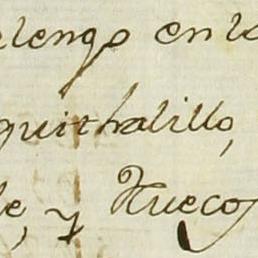 elengo en la
quithalillo,
le, y Huecos